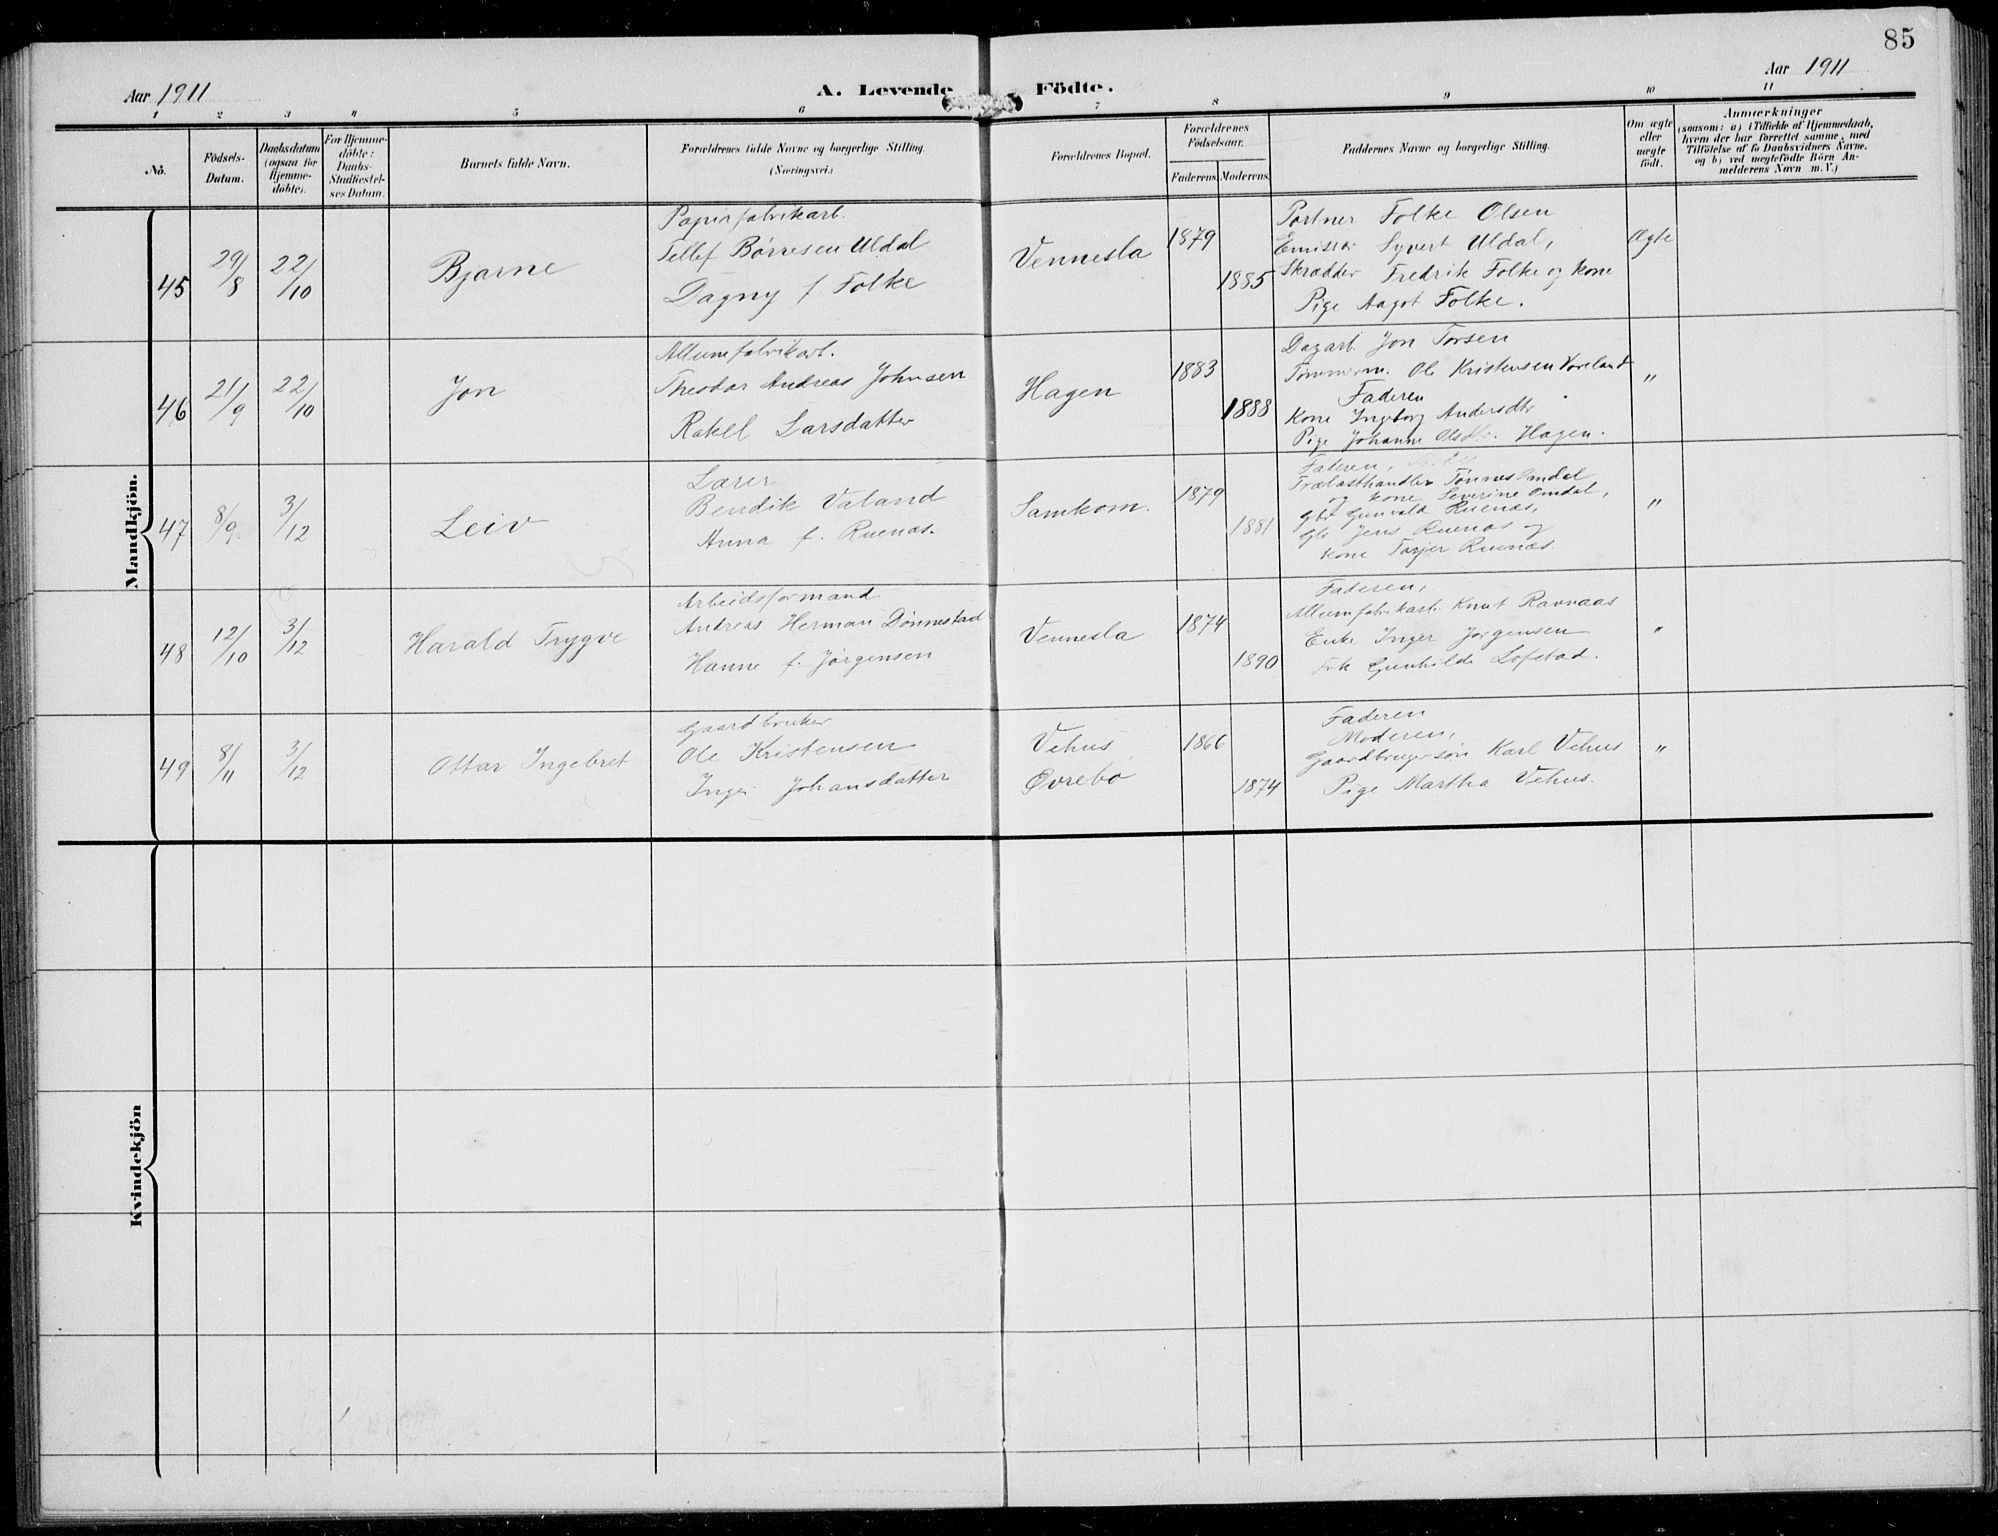 85
Aar 1911
A. Levende Födte.
Aar 1911
1 2 3 4 5 6 7 8 9 10 11
No.
Födsels-
Datum.
Daabsdatum
(ogsaa for
Hjemme-
döbte).
For Hjemme-
döbte:
Daabs-
Stadfæstel-
ses Datum.
Barnets fulde Navn.
Forældrenes fulde Navne og borgerlige Stilling
(Næringsvei.)
Forældrenes Bopæl.
Forældrenes
Födselsaar.
Faderens. Moderens.
Faddernes Navne og borgerlige Stilling.
Om ægte
eller
uægte
födt.
Anmærkninger
(saasom: a) i Tilfælde af Hjemmedaab,
hvem der har forrettet samme, med
Tilföielse af to Daabsvidners Navne,
og b) ved uægtefödte Börn An-
melderens Navn m. V.)
Mandkjön.
45
29/8
22/10
Bjarne
Papirfabrikarb.
Tellef Børresen Uldal
Dagny f Folke
Vennesla
1879
1885
Portner Folke Olsen
Emissr Syvert Uldal,
Skrædder Fredrik Folke og kone
Pige Aagot Folke.
Ægte
46
21/9
22/10
Jon
Allumfabrikarb.
Theodor Andreas Johnsen
Rakel Larsdatter
Hagen
1883
1888
Dagarb. Jon Torsen
Tømmerm. Ole Kristensen Voreland
Faderen
Kone Ingeborg Andersdtr
Pige Johanne Olsdtr. Hagen.
"
47
8/9
3/12
Leiv
Lærer
Bendik Valand
Anna f. Ruenæs.
Samkom.
1879
1881
Faderen,
Trælasthandler Tønnes Omdal
og kone Severine Omdal,
gbr Gunvald Ruenæs,
Gbr Jens Ruenæs og
kone Torjer Ruenæs.
"
48
12/10
3/12
Harald Trygve
Arbeidsformand
Andreas Herman Dønnestad
Hanne f. Jørgensen
Vennesla
1874
1890
Faderen,
Allumfabrikarb. Knut Ravnaas
Enke Inger Jørgensen
Frk Gunhilde Lofstad.
"
49
8/11
3/12
Ottar Ingebret
Gaardbruker
Ole Kristensen
Inger Johansdatter
Vehus
Øvrebø
1866
1874
Faderen
Moderen,
Gaardbrugersøn Karl Vehus
Pige Martha Vehus.
"
Kvindekjön